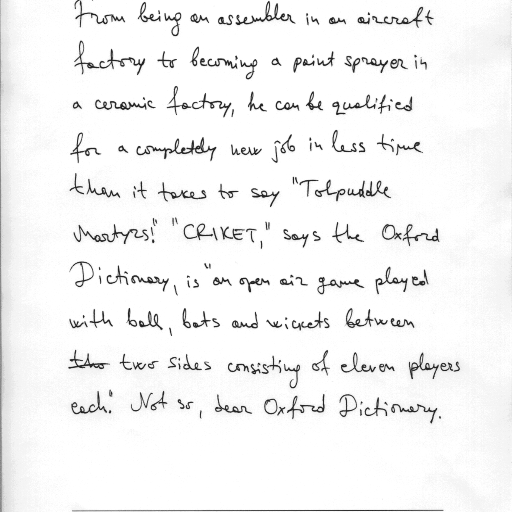 From being an assembler in an aircraft
factory to becoming a paint sprayer in
a ceramic factory, he can be qualified
for a completely new job in less time
than it takes to say "Tolpuddle
Martyrs!" "CRIKET," says the Oxford
Dictionary, is "an open air game played
with ball, bats and wickets between
two sides consisting of eleven players
each." Not so, dear Oxford Dictionary.